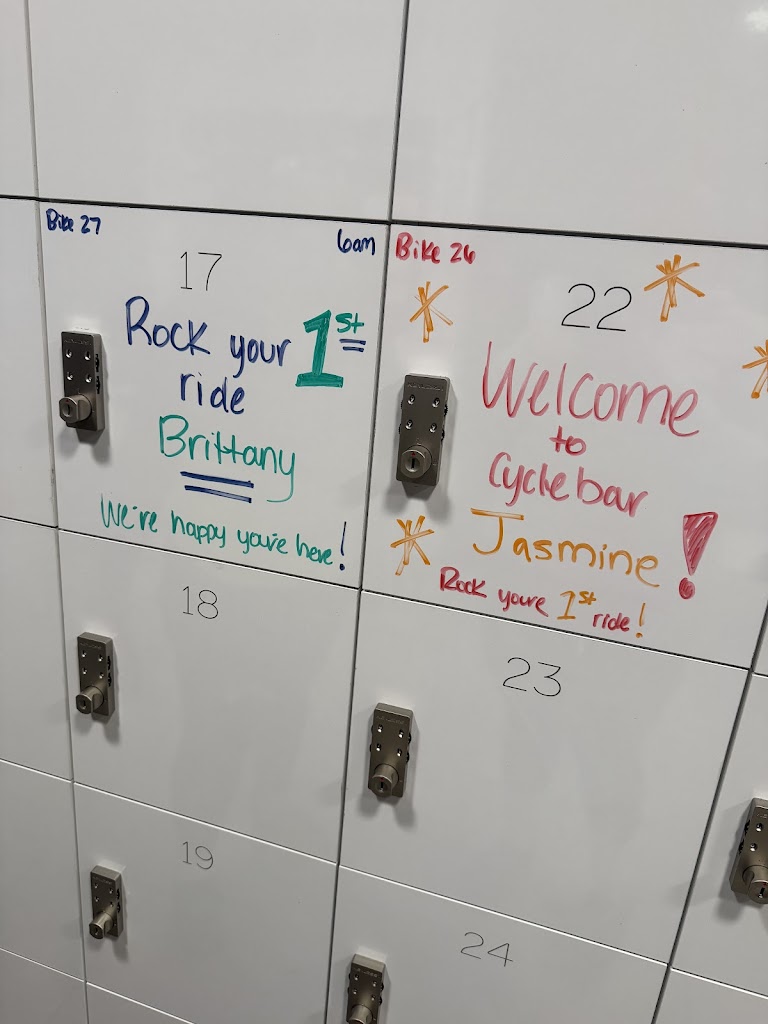 Bike 27
6am
17
Rock your 1st
ride
Brittany
We're happy you're here!
Bike 26
22
Welcome
to
Cyclebar
Jasmine!
Rock youre 1st ride!
18
23
19
24